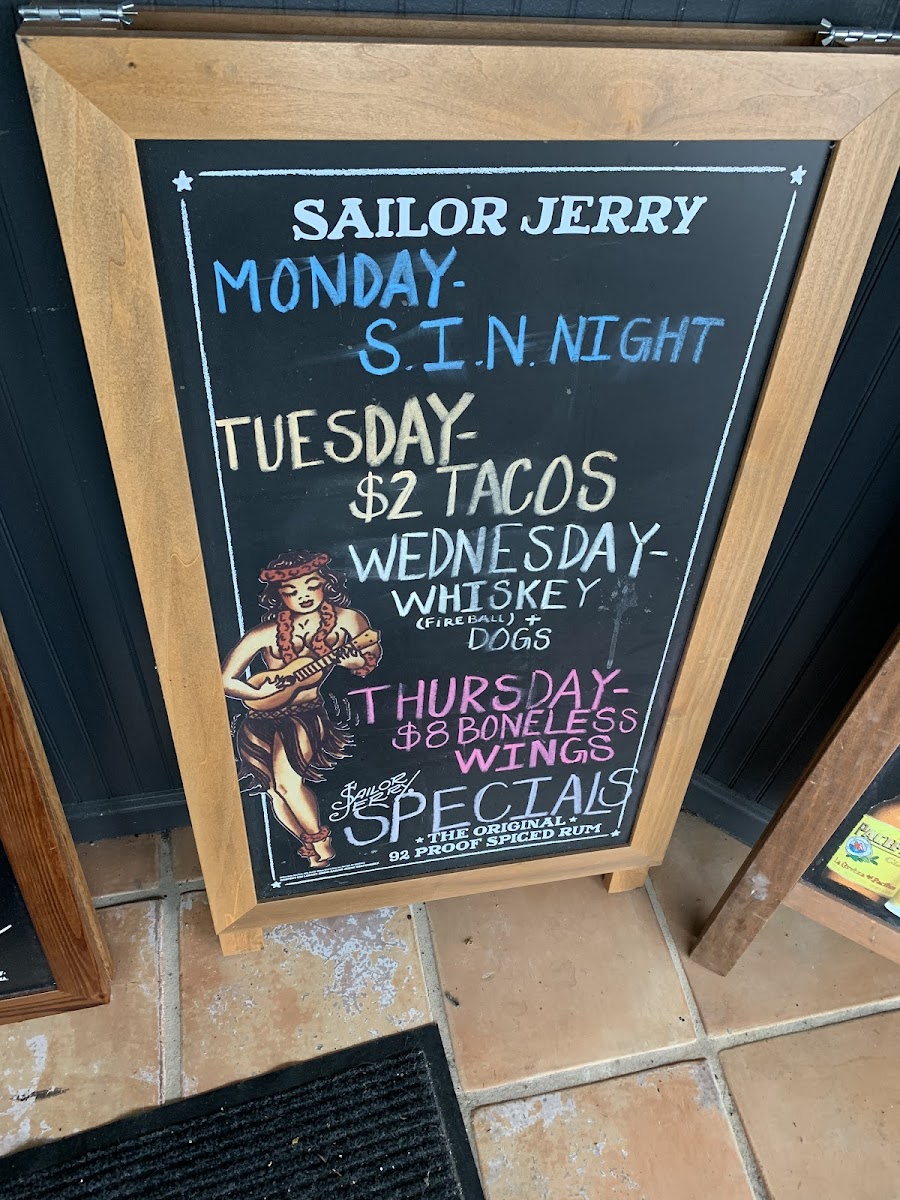 SAILOR JERRY
MONDAY-
S.I.N. NIGHT
TUESDAY-
$2 TACOS
WEDNESDAY-
WHISKEY
(FIREBALL) +
DOGS
THURSDAY-
$8 BONELESS
WINGS
SAILOR
JERRY
SPECIALS
THE ORIGINAL
92 PROOF SPICED RUM